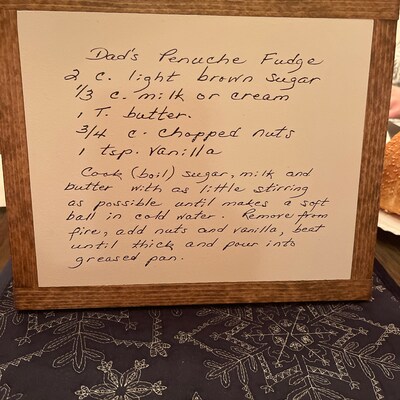 Dad's Penuche Fudge
2 c. light brown sugar
1/3 c. milk or cream
1 T. butter.
3/4 c. chopped nuts
1 tsp. vanilla
Cook (boil) sugar, milk and
butter with as little stirring
as possible until makes a soft
ball in cold water. Remove from
fire, add nuts and vanilla, beat
until thick and pour into
greased pan.